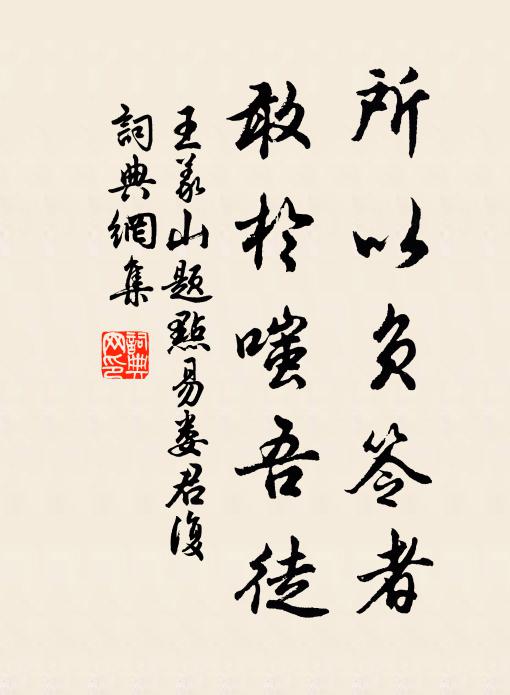 所以負笭者
敢於嗤吾徒
王義山題點易婁君復
詞典網集
詞典网印